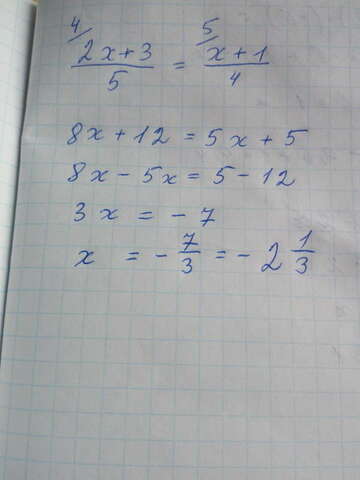 4/ (2x+3)/5 = 5/ (x+1)/4
8x+12 = 5x+5
8x-5x=5-12
3x = -7
x = -7/3 = -2 1/3